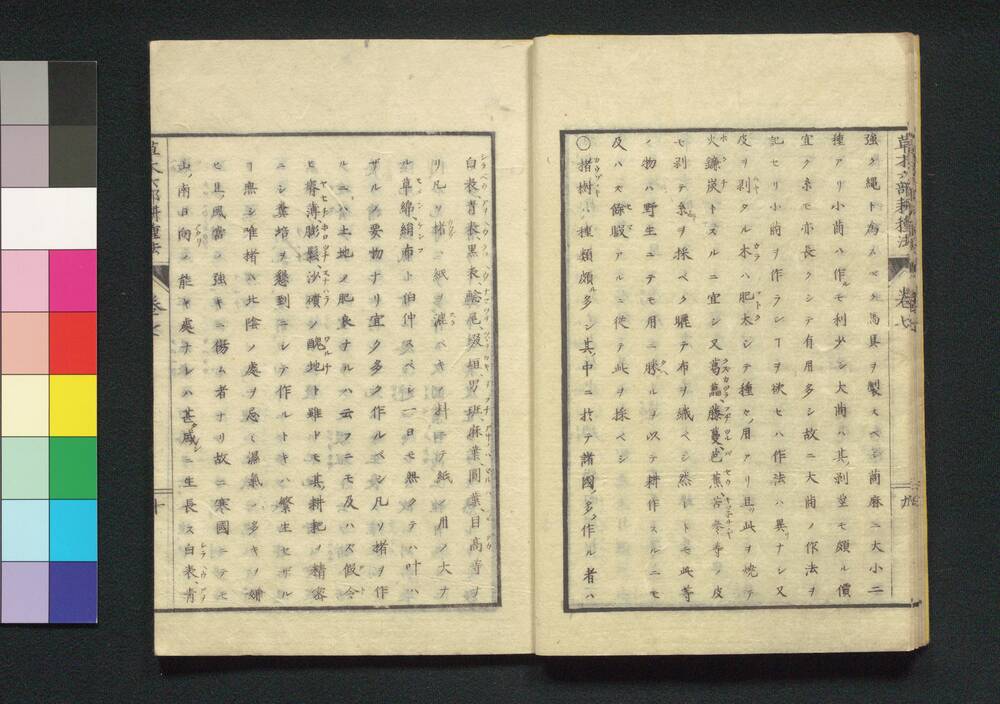 草木六部耕種法 卷七 九
強ク繩ト為スベク馬具ヲ製スベシ苘麻ニ大小二
種アリ小苘ハ作ルモ利少シ大苘ハ其剥莖モ頗ル價
宜ク糸モ亦長クシテ有用多シ故ニ大苘ノ作法ヲ
記セリ小苘ヲ作ランヿヲ欲セハ作法ハ異ナシ又
皮ヲ剥タル木ハ肥太シテ種々用アリ且此ヲ焼テ
火鐮炭トスルニ宜シ又葛藟藤蔓芭蕉苦參等ノ皮
モ剥テ糸ヲ採ベク曬テ布ヲ織ベシ然レトモ此等
ノ物ハ野生ニテモ用ニ勝ルヲ以テ耕作スルニモ
及ハス餘暇アルニ從テ此ヲ採ベシ
○楮樹ハ種類頗多シ其中ニ於テ諸國多ク作ル者ハ
白表青表黒表鯰尾墢垣男班麻葉圓葉目高等ヲ
リ凡ソ楮ハ紙ヲ漉ベキ料ニテ紙ノ用ノ大ナ
ル草綿絹布ト伯仲スベシ一日モ無クテハ叶ハ
ザルノ要物ナリ宜ク多ク作ルベシ凡ソ楮ヲ作
ルニハ土地ノ肥良ナルハ云フニモ及ハズ假令
ヒ瘠薄膨鬆沙磧ノ醜地ト雖トモ其耕耙ヲ精密
ニシ糞培ヲ懇到ニシテ作ルトキハ繁生セザル
リ無シ唯楮ハ北陰ノ處ヲ忌ミ濕氣ノ多キヲ嫌
ヒ且風當ノ強キニ傷ム者ナリ故ニ寒國ニテモ
山ノ南日向ノ能キ處ナレハ甚盛ニ生長ス白表青
草木六部耕種法 卷七 十